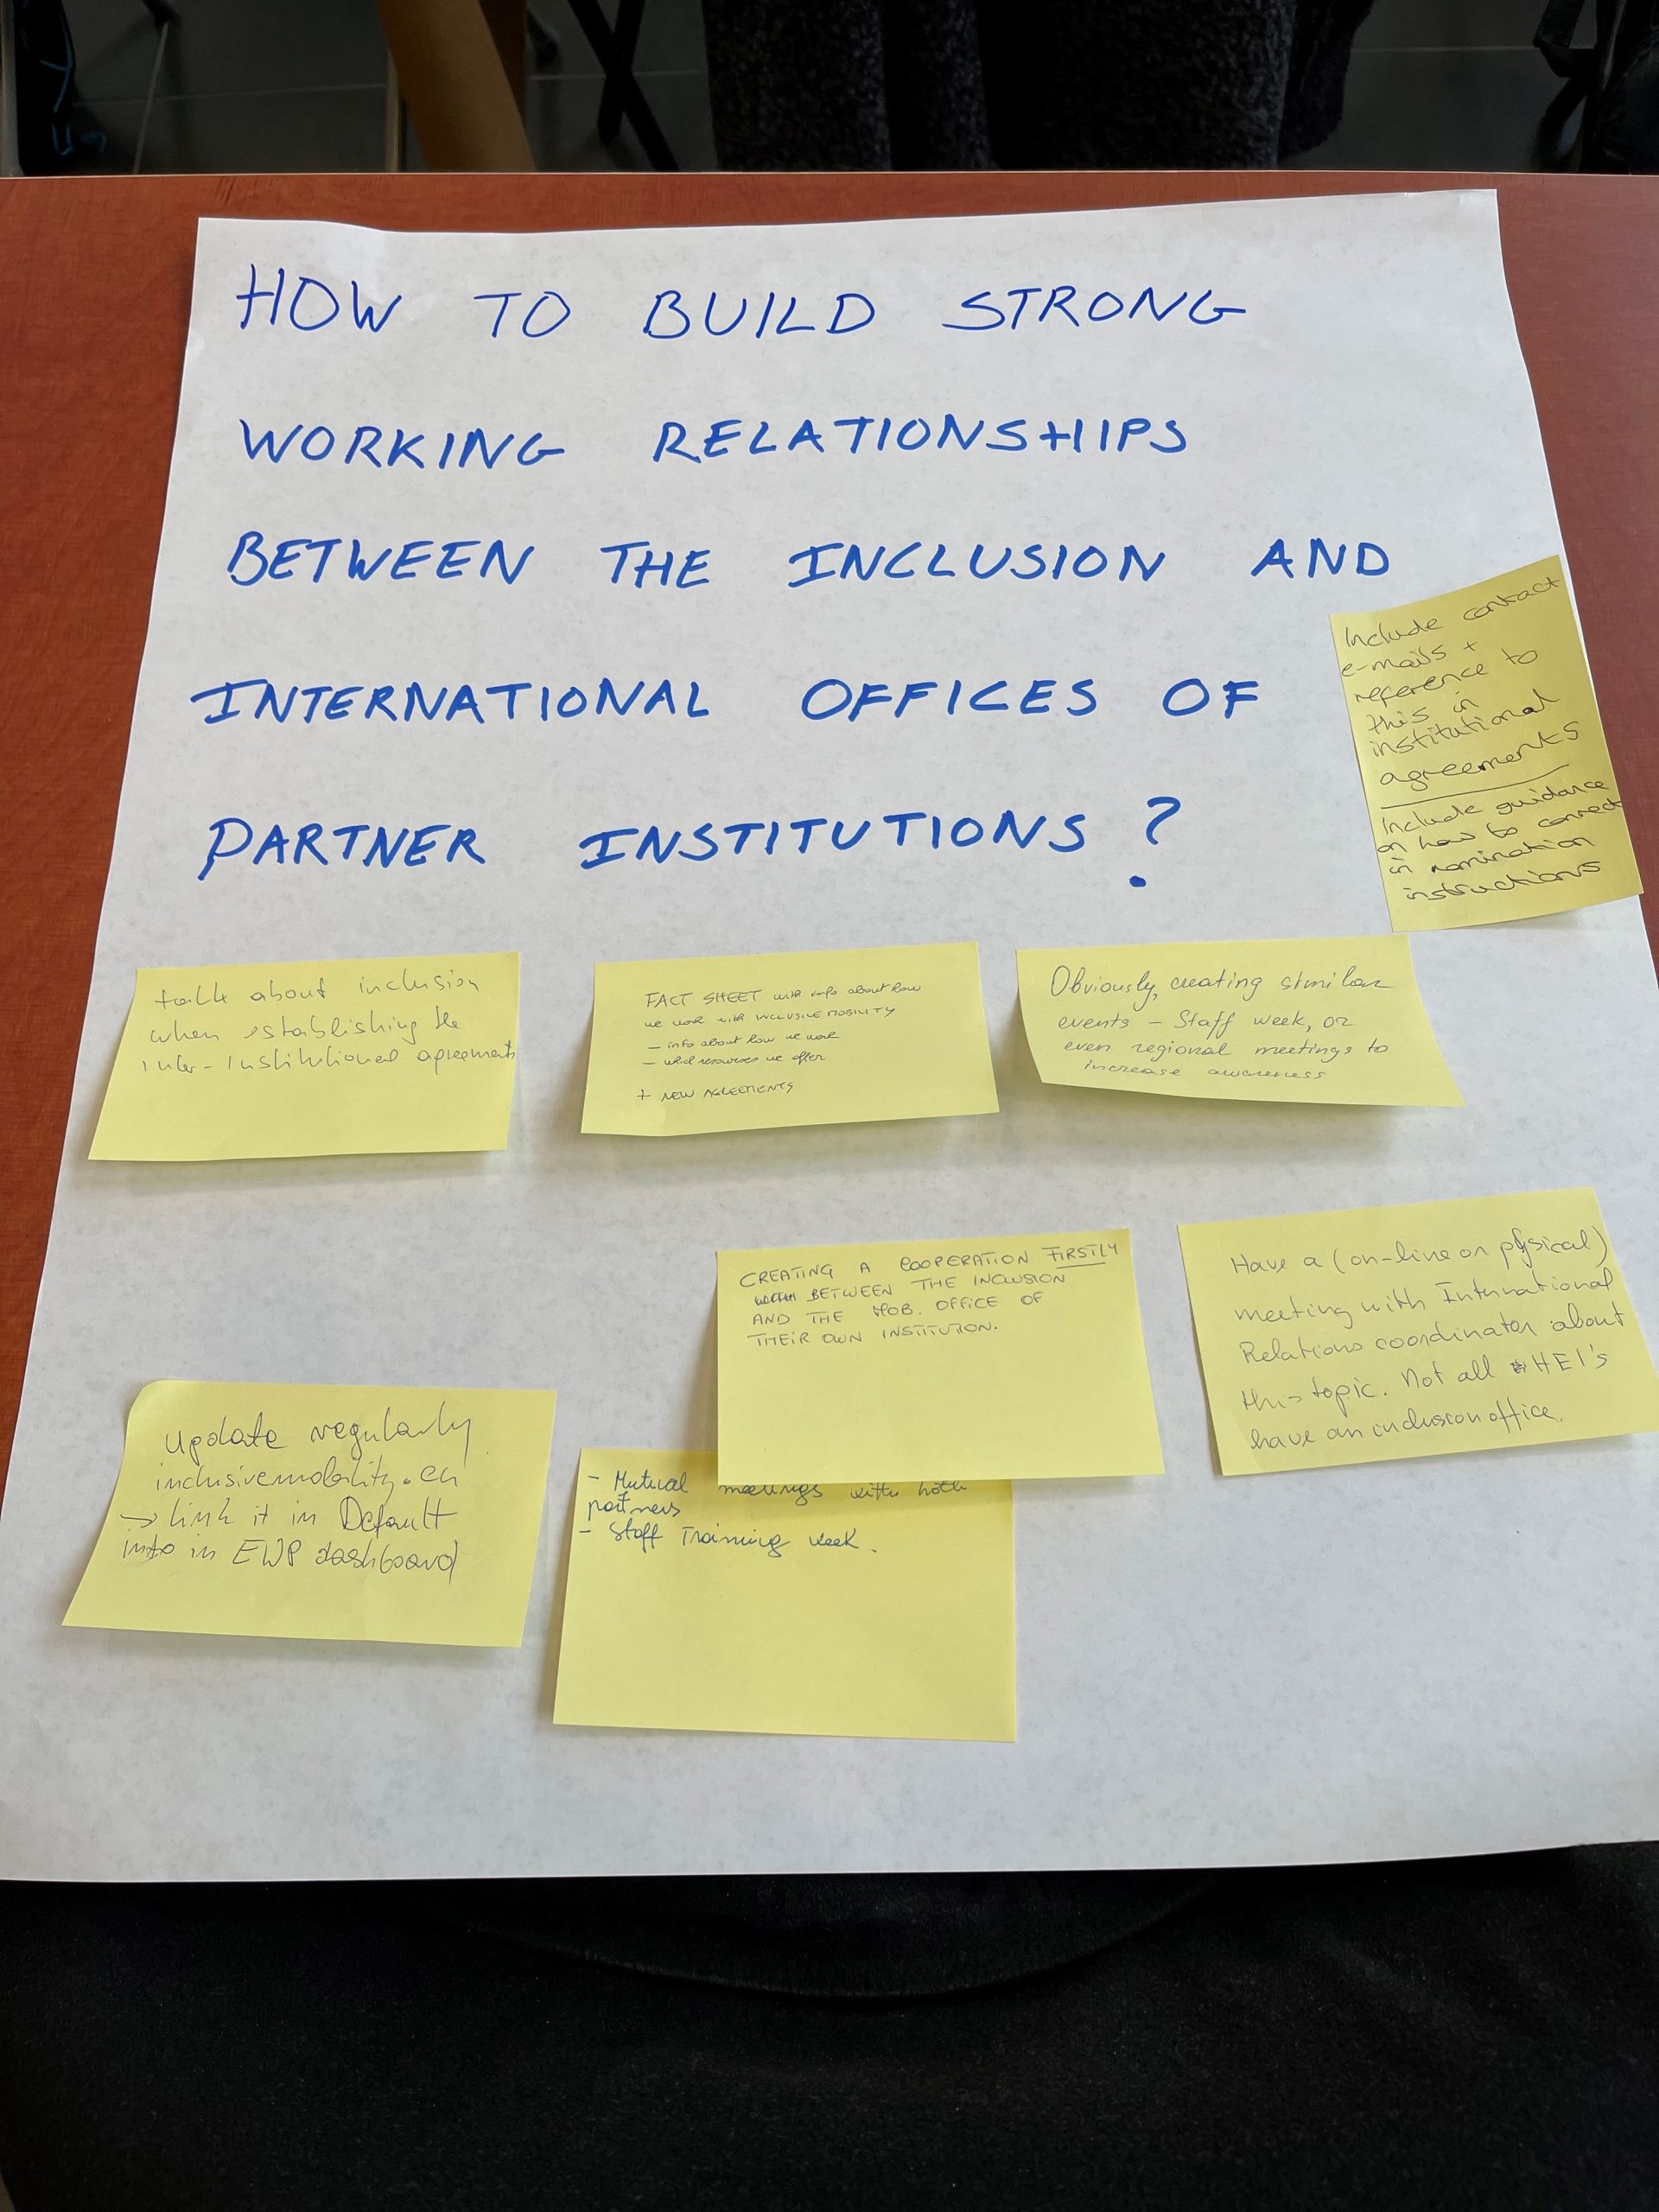 HOW TO BUILD STRONG
WORKING RELATIONSHIPS
BETWEEN THE INCLUSION AND
INTERNATIONAL OFFICES OF
PARTNER INSTITUTIONS?
Include contact
e-mails +
reference to
this in
institutional
agreements
Include guidance
on how to connect
in nomination
instructions
talk about inclusion
when establishing the
inter-institutional agreements
FACT SHEET with info about how
we work with INCLUSIVE MOBILITY
- info about how we work
- what resources we offer
+ NEW AGREEMENTS
Obviously, creating similar
events - Staff week, or
even regional meetings to
increase awareness
CREATING A COOPERATION FIRSTLY
BETWEEN THE INCLUSION
AND THE MOB. OFFICE OF
THEIR OWN INSTITUTION.
Have a (on-line or pysical)
meeting with International
Relations coordinator about
this topic. Not all HEI's
have an inclusion office.
update regularly
inclusivemobility.eu
→ link it in Default
info in EWP dashboard
- Mutual meetings with both
partners
- Staff Training week.